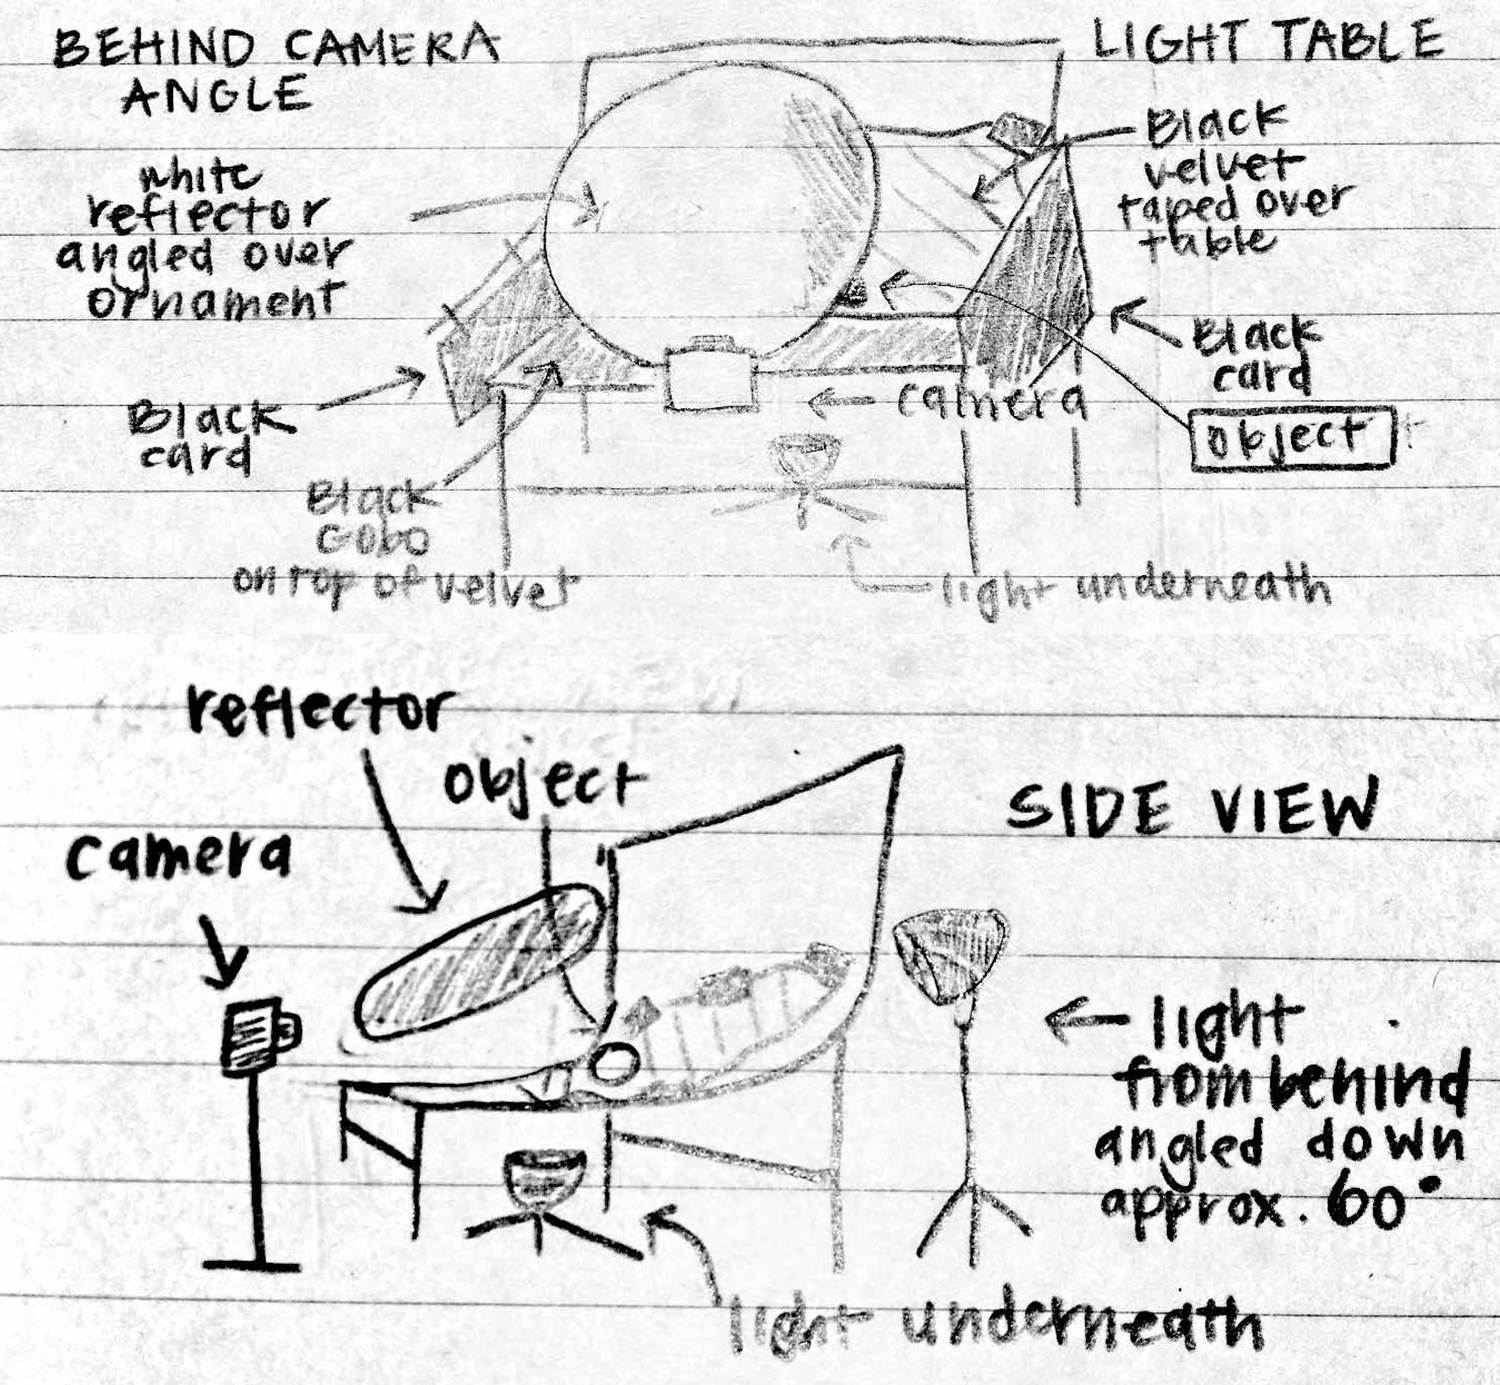 BEHIND CAMERA
ANGLE
LIGHT TABLE
white
reflector
angled over
ornament
Black
velvet
taped over
table
Black
card
Black
card
camera
object
Black
GOBO
on top of velvet
light underneath
reflector
object
camera
SIDE VIEW
light
from behind
angled down
approx. 60°
light underneath